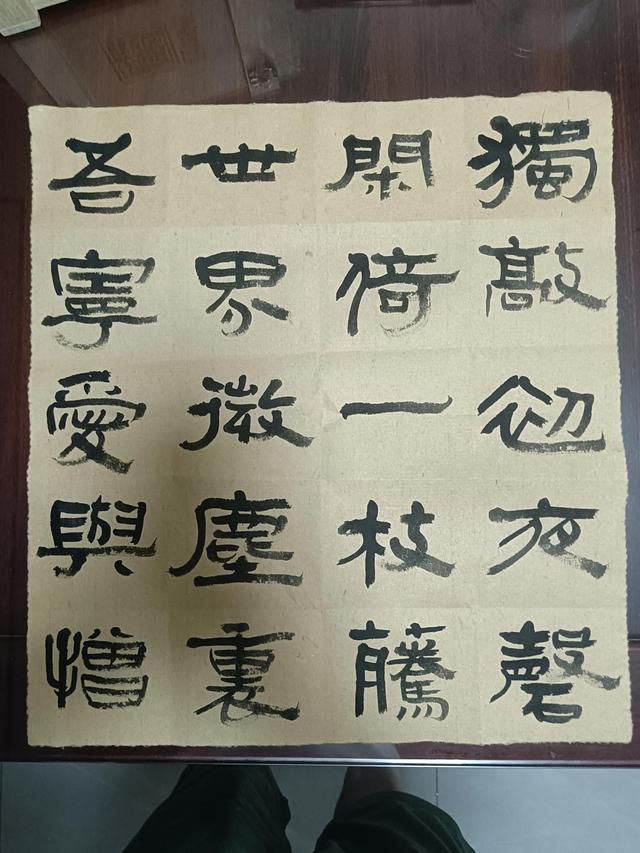 獨敲初夜磬
閑倚一枝騰
世界微塵裏
吾寧愛與憎